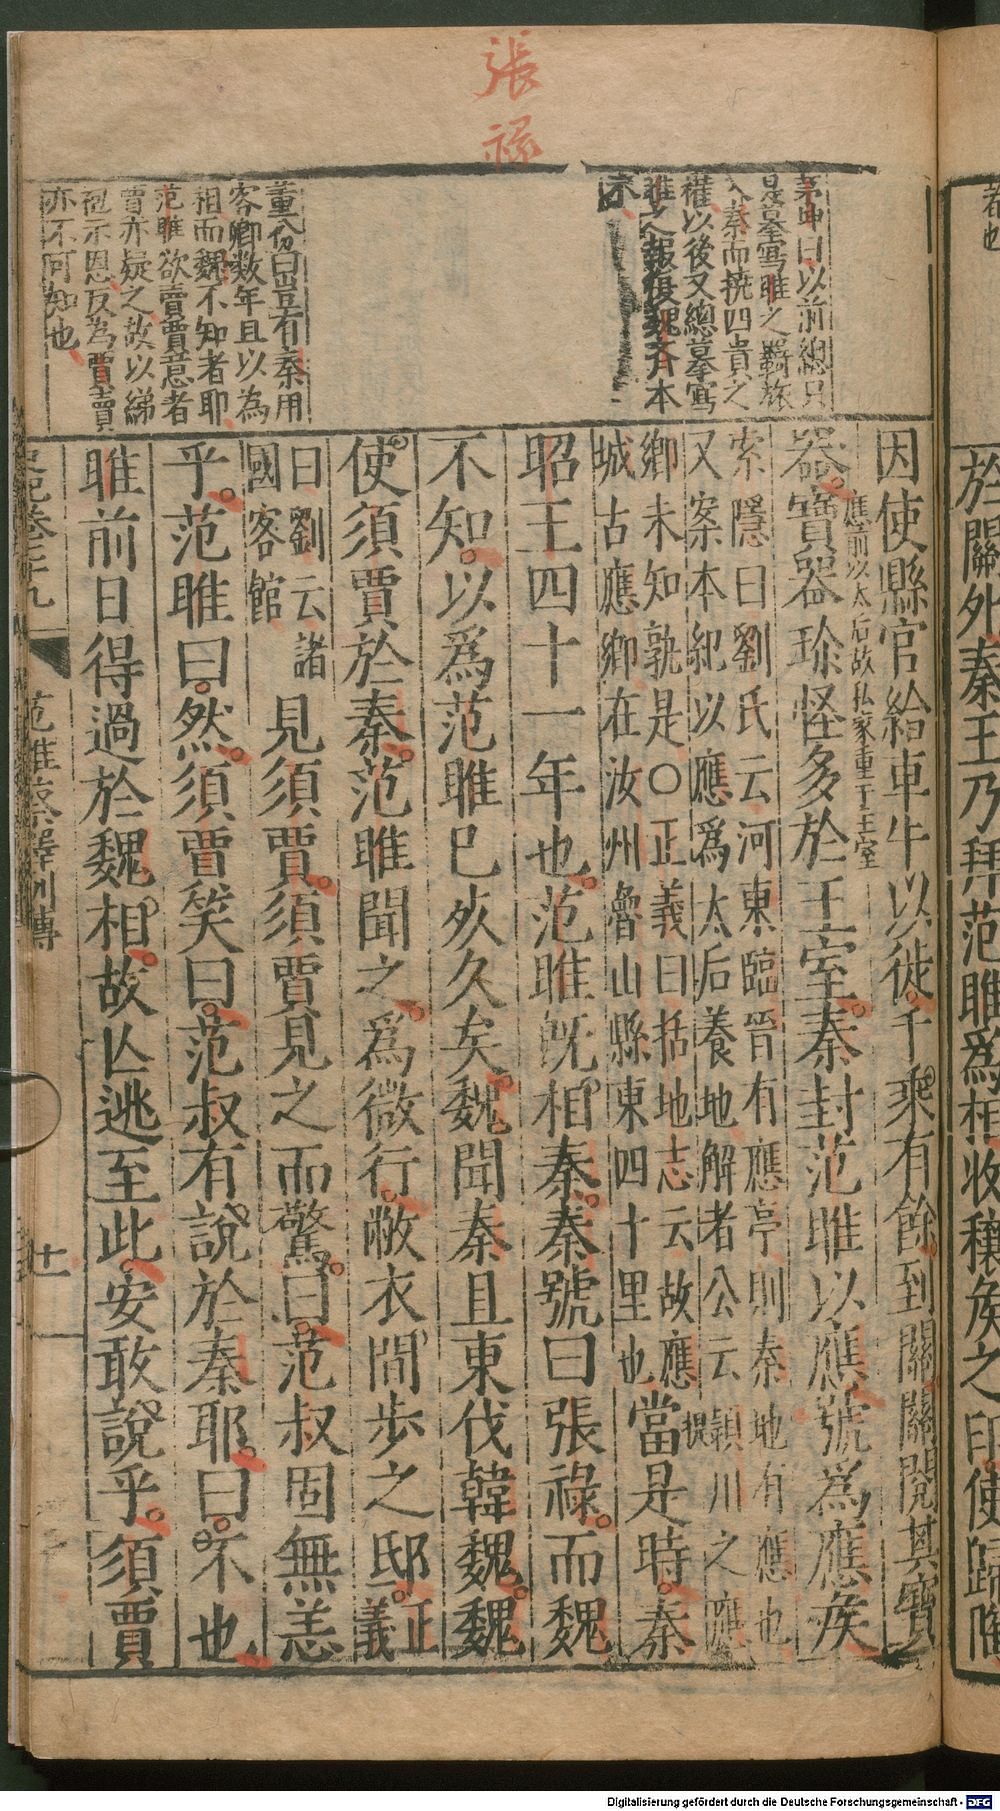 張祿
茅坤曰以前總只
是摹寫睢之羈旅
入秦而撓四貴之
權以後又總摹寫
睢之報復魏齊本
末
董份曰豈有秦用
客卿数年且以為
相而魏不知者耶
范睢欲賣賈意者
賈亦疑之故以綈
袍示恩反為賈賣
亦不可知也
因使縣官給車牛以徙千乘有餘到關關閱其寶
器寶器珍怪多於王室秦封范睢以應號爲應侯
應前以太后故私家重于王室
索隱曰劉氏云河東臨晉有應亭則秦地有應也
又案本紀以應爲太后養地解者公云潁川之應
鄉未知孰是○正義曰括地志云故應
城古應鄉在汝州魯山縣東四十里也
當是時秦
昭王四十一年也范睢旣相秦秦號曰張祿而魏
不知以爲范睢已死久矣魏聞秦且東伐韓魏魏
使須賈於秦范睢聞之爲微行敝衣閒步之邸正義
曰劉云諸國客館見須賈須賈見之而驚曰范叔固無恙
乎范睢曰然須賈笑曰范叔有說於秦耶曰不也
睢前日得過於魏相故亾逃至此安敢說乎須賈
史記卷七十九
范睢蔡澤列傳
十一
者也
於關外秦王乃拜范睢爲相收穰侯之印使歸陶
Digitalisierung gefördert durch die Deutsche Forschungsgemeinschaft - DFG